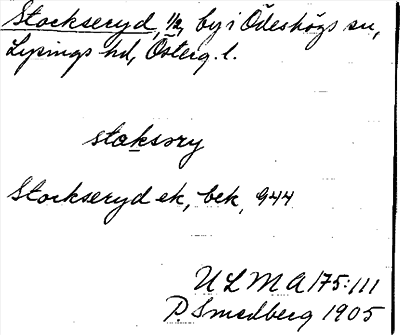 Stockseryd, 1/2, by i Ödeshögs sn,
Lysings hd, Österg. l.
stɷksəry
Stockseryd ek, bek, 944
ULMA 175:111
P Smedberg 1905